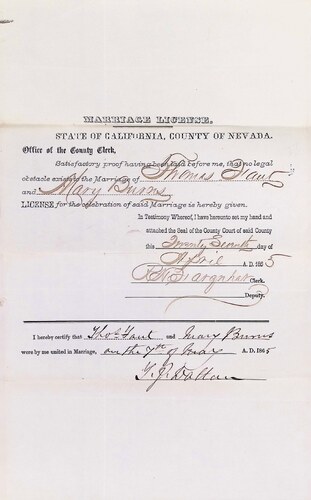 MARRIAGE LICENSE.
STATE OF CALIFORNIA, COUNTY OF NEVADA.
Office of the County Clerk,
Satisfactory proof having been laid before me, that no legal
obstacle exists to the Marriage of Thomas Faut
and Mary Burns
LICENSE, for the celebration of said Marriage is hereby given.
In Testimony Whereof, I have hereunto set my hand and
attached the Seal of the County Court of said County
this Twenty Seventh day of
April A. D. 1865
Clerk.
Deputy.
I hereby certify that Thos. Faut and Mary Burns
were by me united in Marriage, on the 7th of May A. D. 1865
T. J. Dalton